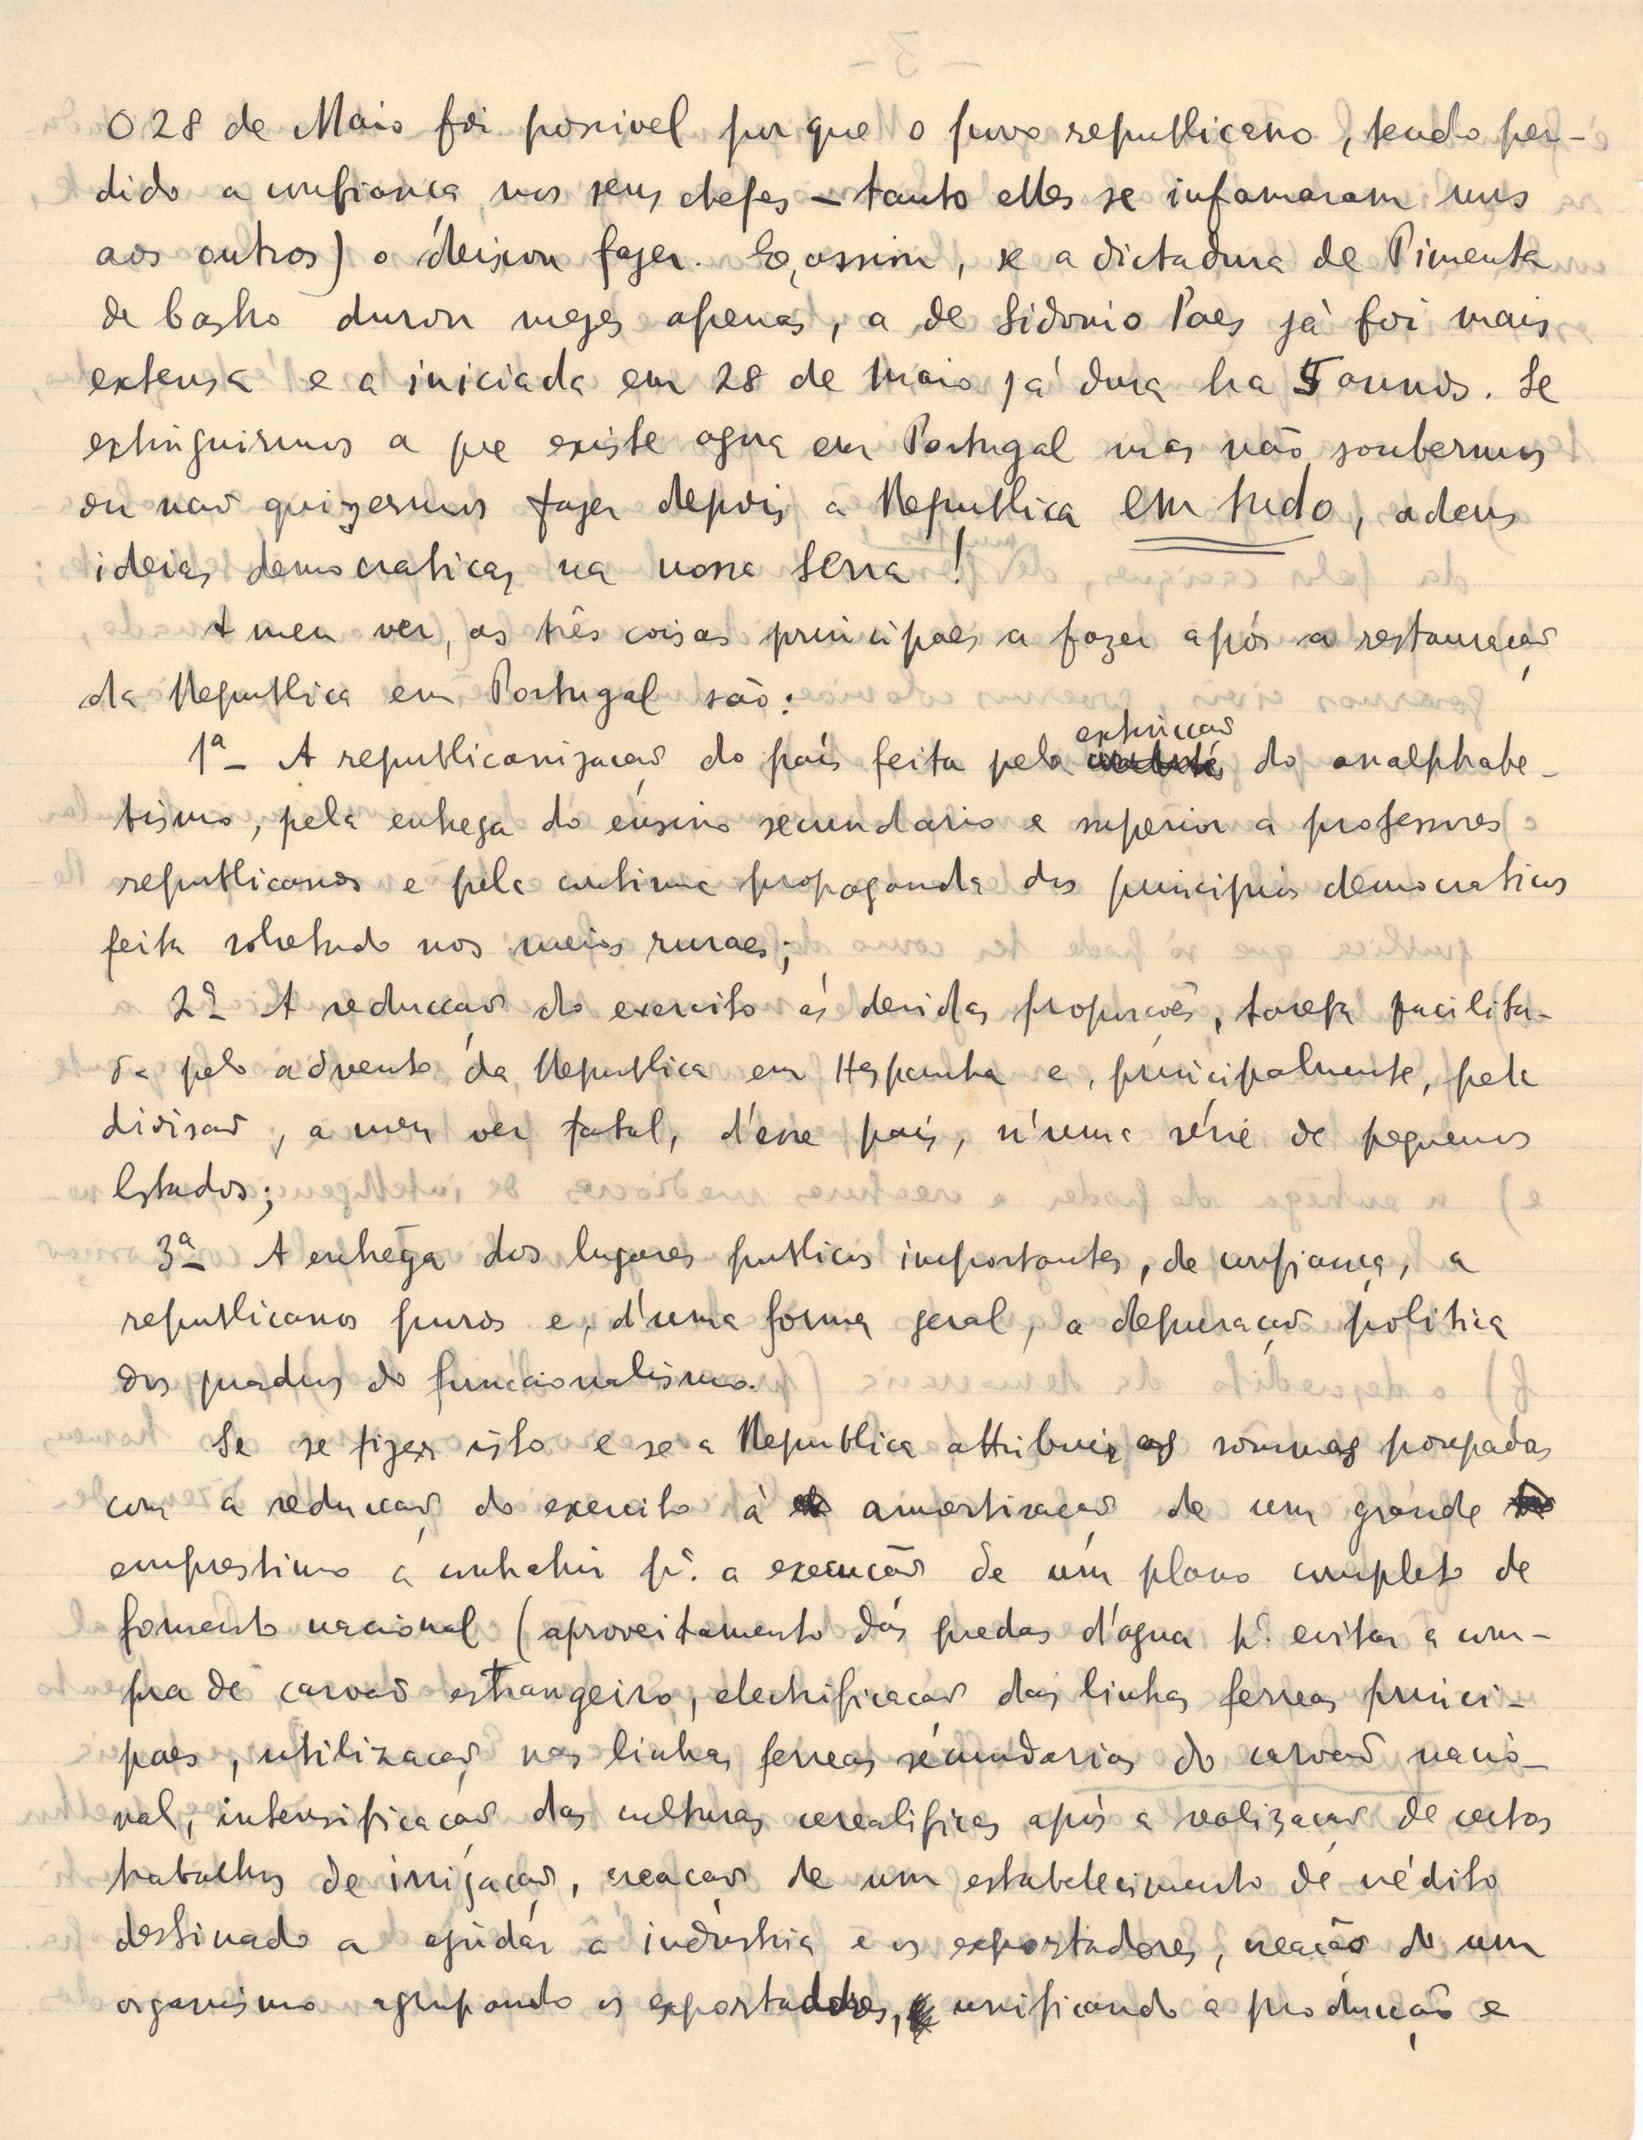 O 28 de Maio foi possivel por que o povo republicano, tendo per-
dido a confiança nos seus chefes – tanto elles se infamaram uns
aos outros) o deixou fazer. E, assim, se a dictadura de Pimenta
de Castro durou mezes apenas, a de Sidonio Paes já foi mais
extensa e a iniciada em 28 de Maio já dura ha 5 annos. Se
extinguirmos a que existe agora em Portugal mas não soubermos
ou não quizermos fazer depois a Republica em tudo, adeus
ideias democraticas na nossa terra!
A meu ver, as três coisas principaes a fazer após a restauração
da Republica em Portugal são:
1ª – A republicanização do país feita pela extincção do analphabe-
tismo, pela entrega do ensino secundario e superior a professores
republicanos e pela continua propaganda dos principios democraticos
feita sobretudo nos meios ruraes;
2ª A reducção do exercito ás devidas proporções, tarefa facilita-
da pelo advento da Republica em Hespanha e, principalmente, pela
divisão, a meu ver fatal, d'esse país, n'uma série de pequenos
Estados;
3ª A entrega dos lugares publicos importantes, de confiança, a
republicanos puros e, d'uma forma geral, a depuração politica
dos quadros do funccionalismo.
Se se fizer isto e se a Republica attribuir as sommas poupadas
com a reducção do exercito á amortização de um grande
emprestimo a contrahir pª. a execução de um plano completo de
fomento nacional (aproveitamento das quedas d'agua pª. evitar a com-
pra de carvão estrangeiro, electrificação das linhas ferreas princi-
paes, utilização nas linhas ferreas secundarias do carvão nacio-
nal, intensificação das culturas cerealificas após a realização de certos
trabalhos de irrigação, creação de um estabelecimento de crédito
destinado a ajudar a industria e os exportadores, creação de um
organismo agrupando os exportadores, unificando a producção e